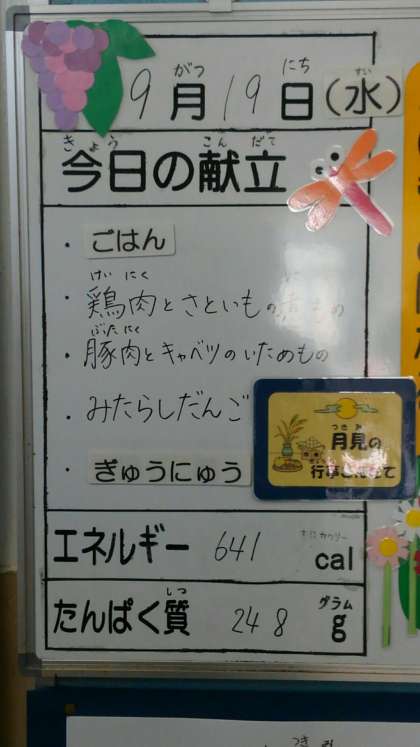 がつ にち すい
9月19日(水)
きょう こんだて
今日の献立
・ごはん
けいにく に
・鶏肉とさといもの煮もの
ぶたにく
・豚肉とキャベツのいためもの
・みたらしだんご
つきみ
月見の
行事こんだて
・ぎゅうにゅう
エネルギー 641 cal
しつ グラム
たんぱく質 24.8 g
つき み